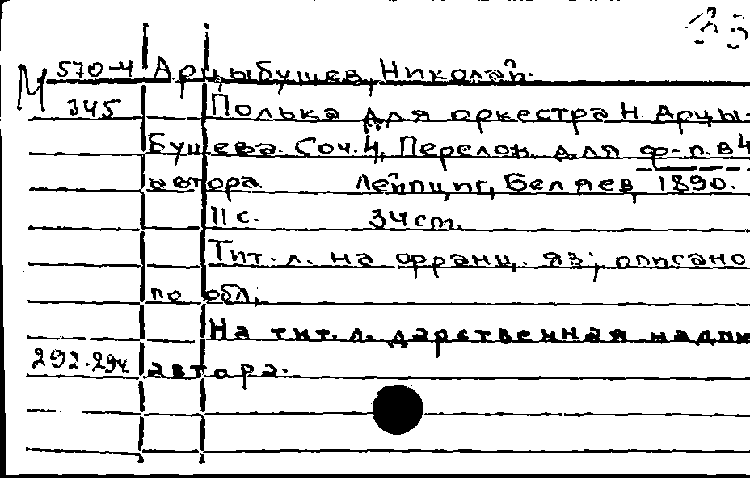 М 570-4 Арцыбушев, Николай.
345 Полька для оркестра Н. Арцы-
бушева. Соч. 4, Перелож. для ф-п. в 4
автора. Лейпциг, Беляев, 1890.
11 с. 34 cm.
Тит. л. на франц. яз; описано
по обл.
На тит. л. дарственная надпи
292.294 автора.